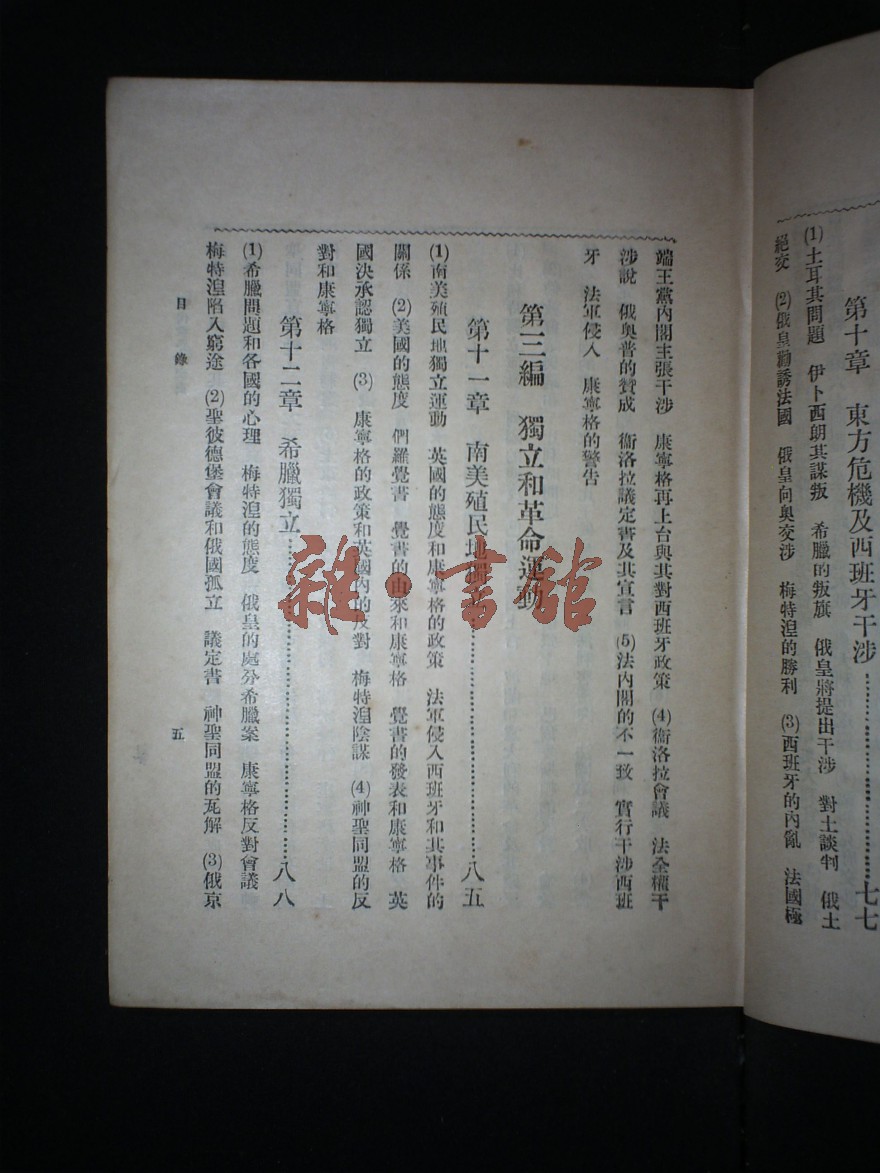 第十章　東方危機及西班牙干涉……………………七七
(1)土耳其問題　伊卜西朗其謀叛　希臘的叛旗　俄皇將提出干涉　對土談判　俄土
絕交　(2)俄皇勸誘法國　俄皇向奧交涉　梅特湼的勝利　(3)西班牙的內亂　法國極
端王黨內閣主張干涉　康寧格再上台與其對西班牙政策　(4)衞洛拉會議　法全權干
涉說　俄奧普的贊成　衞洛拉議定書及其宣言　(5)法內閣的不一致　實行干涉西班
牙　法軍侵入　康寧格的警告
第三編　獨立和革命運動
第十一章　南美殖民地獨立……………………八五
(1)南美殖民地獨立運動　英國的態度和康寧格的政策　法軍侵入西班牙和其事件的
關係　(2)美國的態度　們羅覺書　覺書的由來和康寧格　覺書的發表和康寧格　英
國決承認獨立　(3)　康寧格的政策和英國內的反對　梅特湼陰謀　(4)神聖同盟的反
對和康寧格
第十二章　希臘獨立……………………八八
(1)希臘問題和各國的心理　梅特湼的態度　俄皇的處分希臘案　康寧格反對會議
梅特湼陷入窮途　(2)聖彼德堡會議和俄國孤立　議定書　神聖同盟的瓦解　(3)俄京
目錄　五
雜·書館